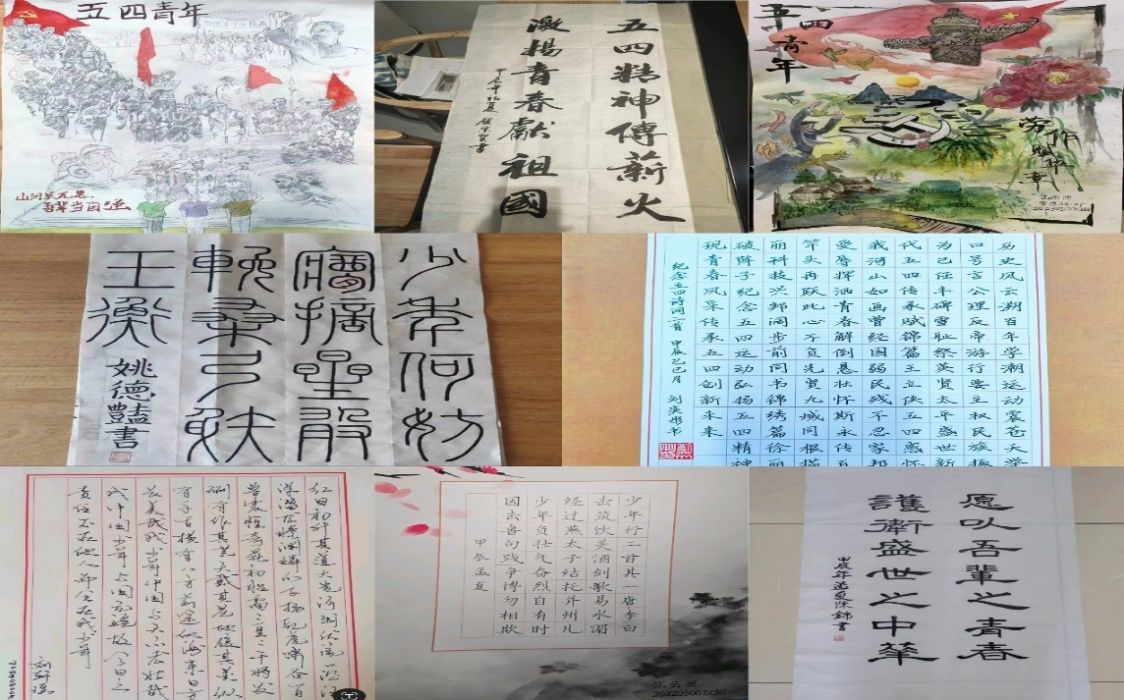 五四青年
山河无恙，
吾辈当自强
五四精神傳薪火
激揚青春獻祖國
甲辰年初夏
五四青年
劳作赋华章
少年何妨
夢摘星敢
輓桑弓射
玉衡
姚德豔書
历史风云溯百年学潮运动震苍天举
口号言公理反帝游行要主权民族振
为己任丰碑雪耻祭英贤太平盛世新
代五四传承赋锦篇王立侠五四感怀
我河山如画曾经国弱民残不忍家邦
爱辱挥洒青春解倒悬壮怀斯永传百
竿头再跃此心不负先贤九域同根描
丽科技兴邦阔步前同书锦绣篇徐丽
破阵子纪念五四运动弘扬五四精神
现青春风采传承五四创新未来
纪念五四诗词二首 甲辰己巳月 刘奕彤书
红日初升其道大光河出伏流一泻汪
洋潜龙腾渊鳞爪飞扬乳虎啸谷百
兽震惶奇花初胎矞矞皇皇干将发
硎有作其芒天戴其苍地履其黄纵
有千古横有八荒前途似海来日方
长美哉我少年中国与天不老壮哉
我中国少年与国无疆故今日之
责任不在他人而全在我少年
少年行二首其一 唐李白
击筑饮美酒剑歌易水湄
经过燕太子结托并州儿
少年负壮气奋烈自有时
因击鲁勾践争博勿相欺
甲辰孟夏
202205001230
愿以吾輩之青春
護衛盛世之中華
甲辰年孟夏陳錦書